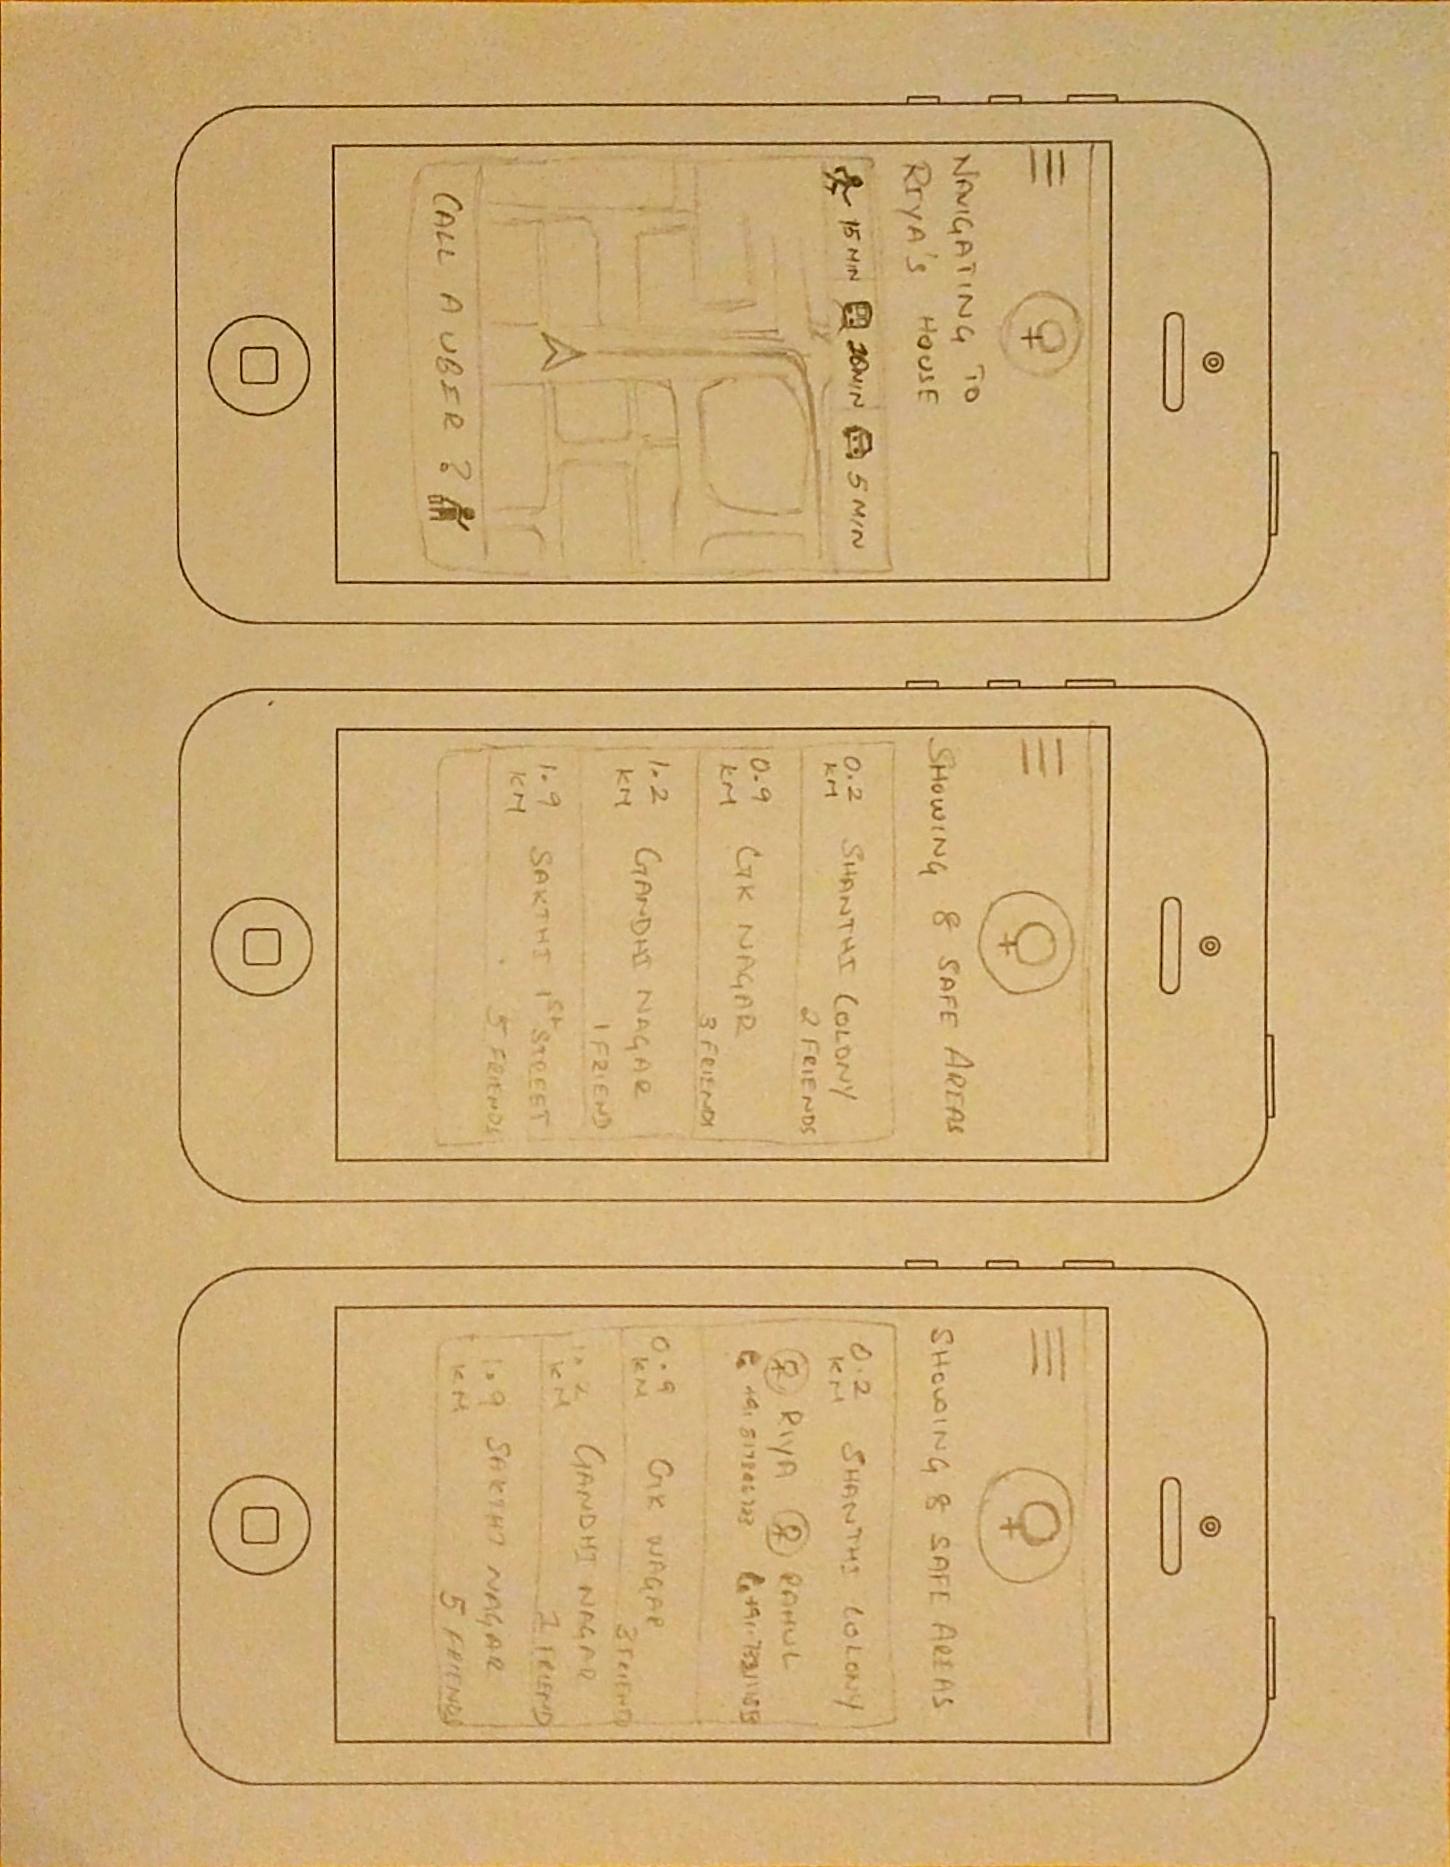 NAVIGATING TO
RIYA'S HOUSE
15 MIN 20MIN 5 MIN
CALL A UBER ?
SHOWING 8 SAFE AREAS
0.2 KM SHANTHI COLONY
2 FRIENDS
0.9 KM GK NAGAR
3 FRIENDS
1.2 KM GANDHI NAGAR
1 FRIEND
1.9 KM SAKTHI 1st STREET
5 FRIENDS
SHOWING 8 SAFE AREAS
0.2 KM SHANTHI COLONY
RIYA RAHUL
0.9 KM GK NAGAR
3 FRIEND
1.2 KM GANDHI NAGAR
1 FRIEND
1.9 KM SAKTHI NAGAR
5 FRIENDS